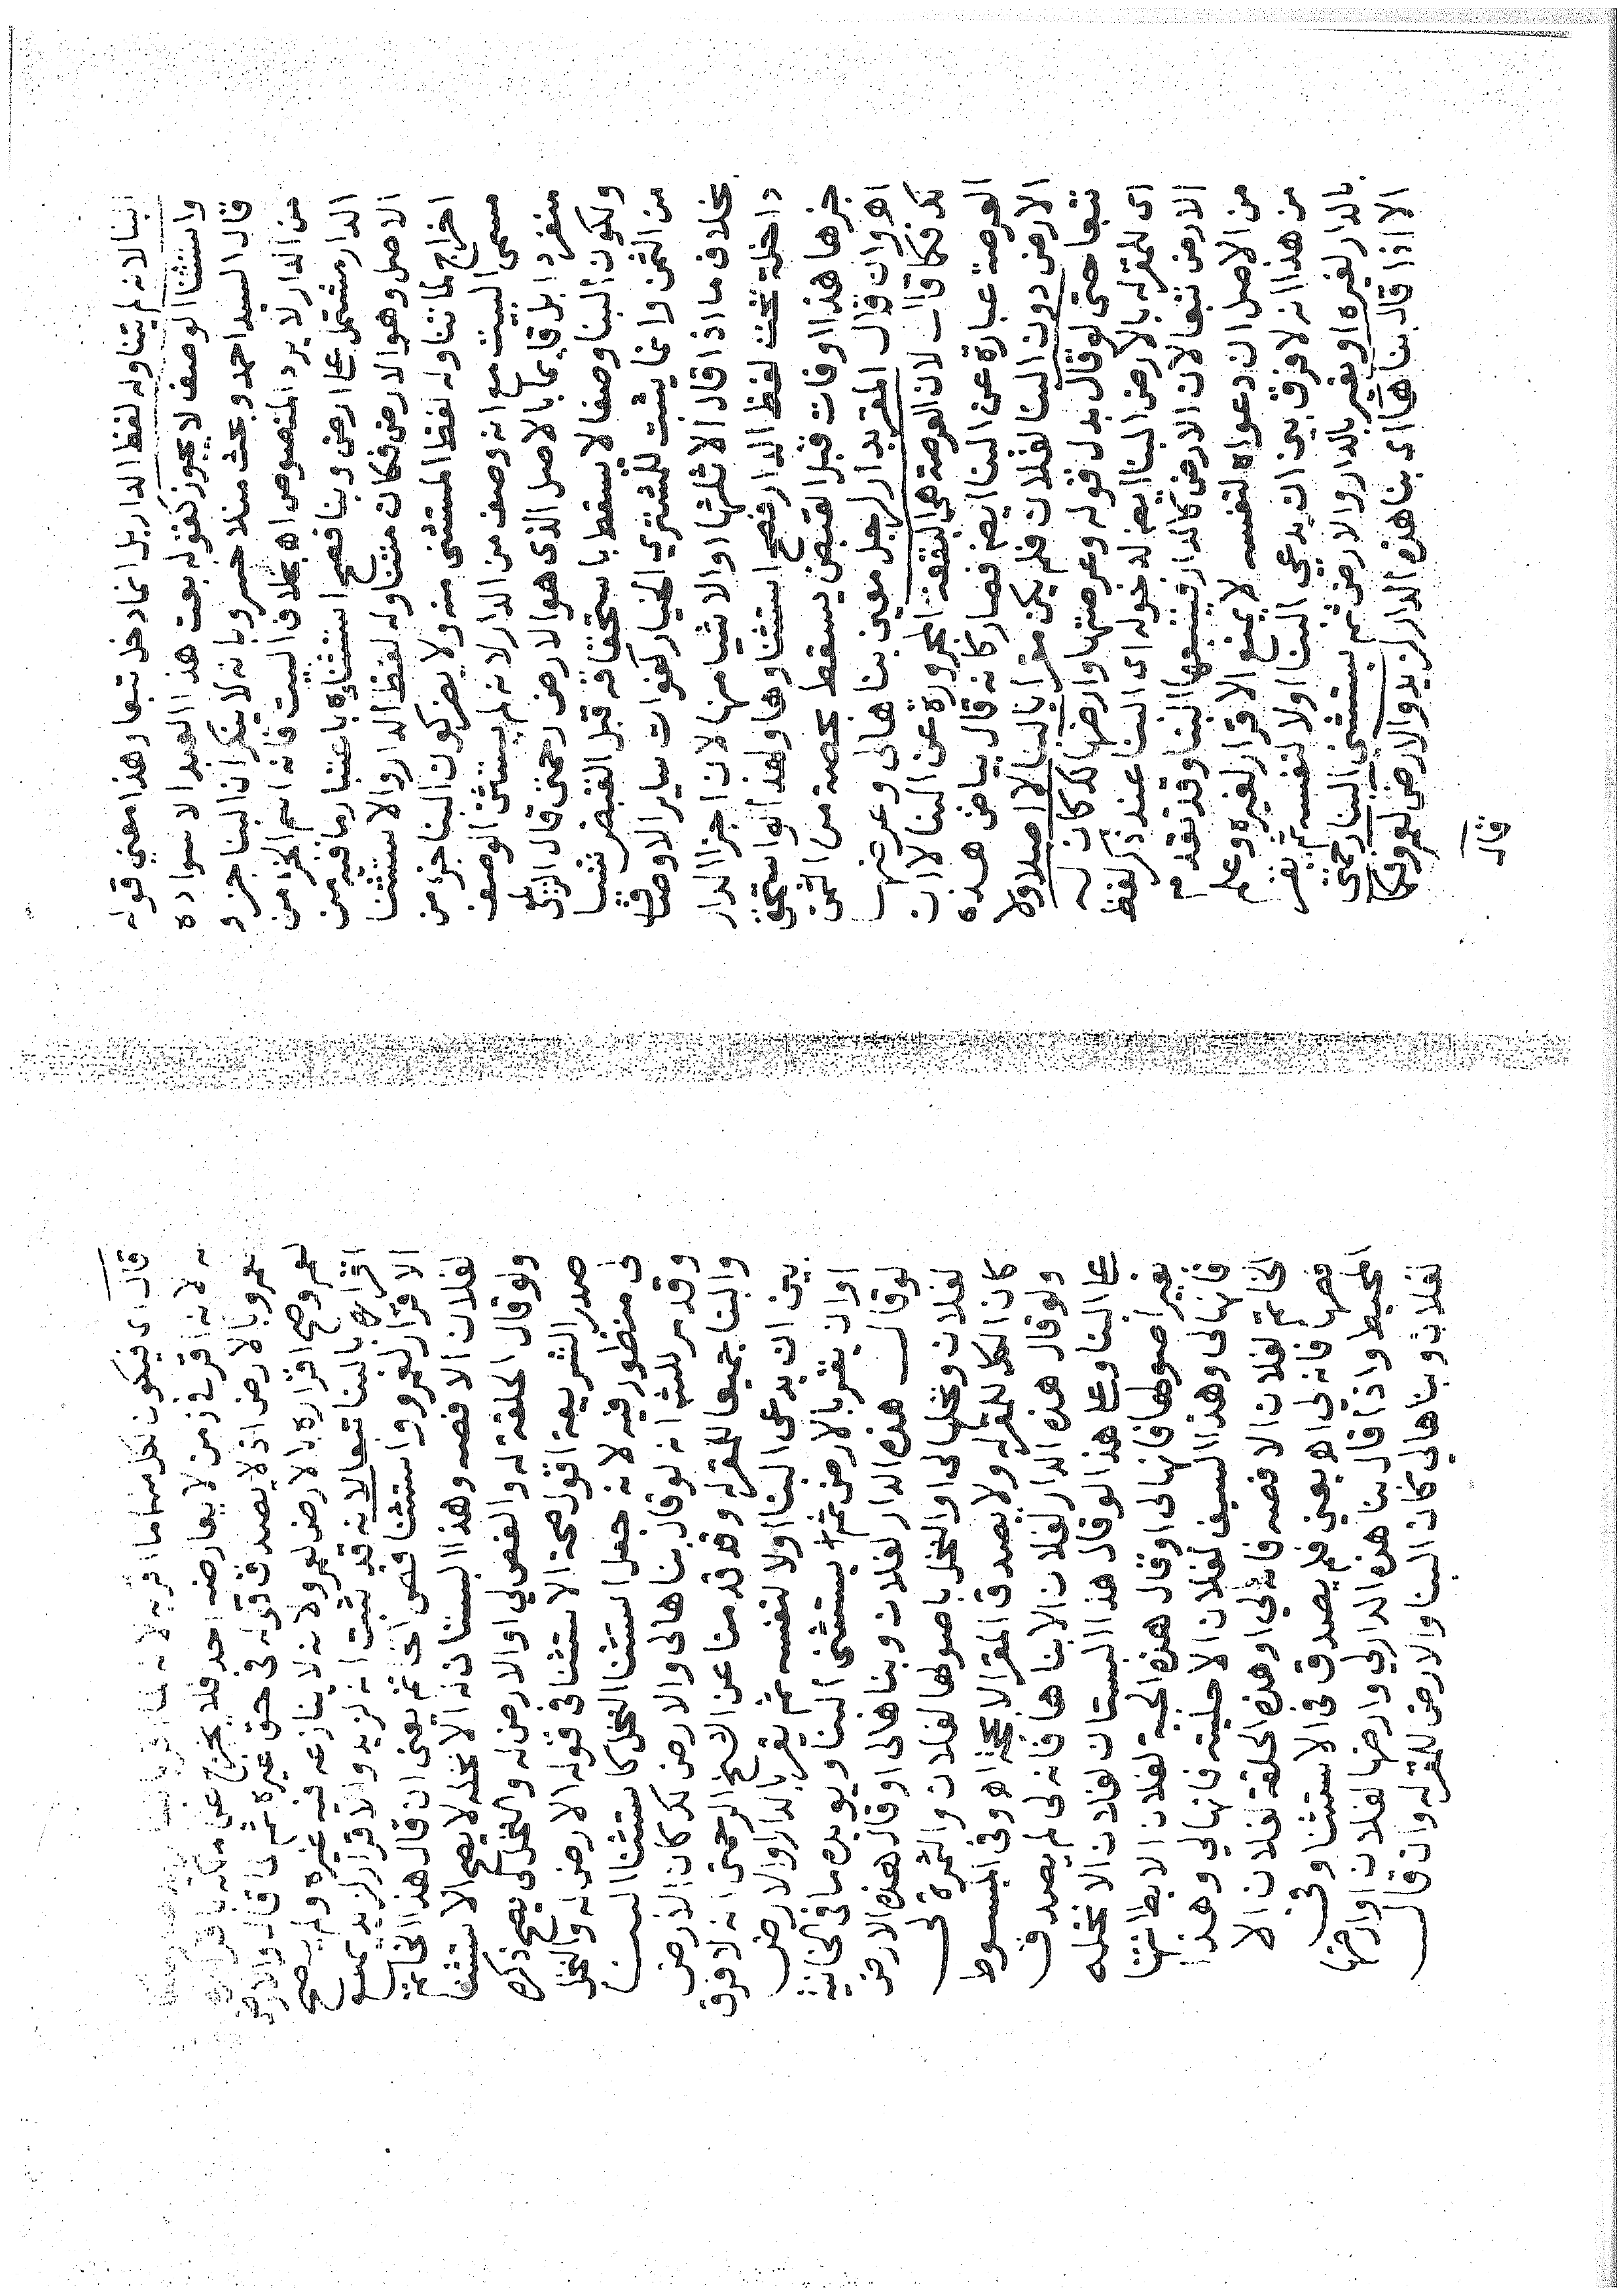 البنا لانه لم يتناوله لفظ الدار بل انما دخل تبعا وهذا معنى قوله
واستثنا الوصف لا يجوز كقوله بعت هذا العبد الا سواده
قال السيد احمد وبحث منلا خسرو بانه لا ينكر ان البنا جزء
من الدار لا يرد المنصوص اه بخلاف البيت فانه اسم لجزء من
الدار مشتمل على ارض وبنا فصح استثناؤه باعتبار ما فيه من
الاصل وهو الارض فكان متناوله لفظ الدار والاستثنا
اخراج لما تناوله لفظ المستثنى منه ولا يضر كون البنا جزء من
مسمى البيت مع انه وصف من الدار لانه لم يستثن الوصف
منفردا بل قايما بالاصل الذى هو الارض رحمتى قال الزيلعى
ولكون البنا وصفا لا يسقط باستحقاقه قبل القبض شيا
من الثمن وانما يثبت للمشتري الخيار كفوات ساير الاوصاف
بخلاف ما اذا قال الا ثلثها او الا شيا منها لان اجزا الدار
داخلة تحت لفظ الدار فصح استثناوها ولهذا لو استحق
جزها هذا او فات قبل القبض يسقط بحصته من الثمن
اه وان قال المقر بدار لرجل معين بناها لى وعرصتها
لك فكما قال لان العرصة هى البقعة عن البنا لان
العرصة عبارة عن البنا ايض فصار كانه قال بياض هذه
الارض دون البنا لفلان فلم يكن مقرا بالبنا لا اصلا ولا
تبعا حتى لو قال بدل قوله وعرصتها وارضها لك كان له
اى للمقر له بالارض البنا ايض لدخوله اى البنا عند ذكر لفظ
الارض تبعا لان الارض كالدار فيتبعها البنا وقد تقدم
من الاصل ان دعواه لنفسه لا يمنع الاقرار لغيره وعلم
من هذا انه لا فرق بين ان يدعي البنا اولا لنفسه ثم يقر
بالدار لغيره او يقر بالدار والارض ثم يستثنى البنا رحمتى
الا اذا قال بناها اى بنا هذه الدار لزيد والارض لعمرو فكما
قال
قال اى فيكون لكل منهما ما اقر به لانه لما اقر
له لانه اقر فى زمن لا يعارضه احد فلا يخرج عن ملكه باقراره
لعمرو بالارض اذ لا يصدق قوله فى حق غيره ثم لما قال والارض
لعمرو صح اقراره بالارض لعمرو لانه لا ينازعه فيه غيره ولم يصح
اقراره بالبنا تبعا لانه قد ثبت انه لزيد والاقرار لزيد يمنع
الاقرار لعمرو واستثنا فص الخاتم يعنى ان قال هذا الخاتم
لفلان الا فصه وهذا البستان له الا نخله لا يصح الاستثنا
ولو قال الحلقة له والفص لي او الارض له والنخل لي يصح ذكره
صدر الشريعة اقول صحة الاستثنا فى قوله الارض له والنخل
لى منظور فيه لانه جعل استثنا النخل كاستثنا البنا
وقد مر للش انه لو قال بناها لى والارض لك كان الارض
والبنا جميعا للمقر له وقد قدمنا عن الشيخ الرحمتى انه لا فرق
بين ان يدعى البنا اولا لنفسه ثم يقر بالدار او الارض
او ان يقر بالارض ثم يستثنى البنا ويويده ما فى الخانية
لو قال هذه الدار لفلان وبناها لى او قال هذه الارض
لفلان ونخلها لى او النخل باصولها لفلان والثمرة لى
كان الكل للمقر له ولا يصدق المقر الا بحجة اه وفى المبسوط
ولو قال هذه الدار لفلان الا بناها فانه لى لم يصدق
على البنا وعلى هذا لو قال هذا البستان لفلان الا نخله
بغير اصولها فانها لى او قال هذه الجبة لفلان الا بطانتها
فانها لى وهذا السيف لفلان الا حليته فانها لي وهذا
الخاتم لفلان الا فصه فانه لي او هذه الحلقة لفلان الا
فصها فانه لى اه يعني فلم يصدق فى الاستثنا وفى
المحيط واذا قال بنا هذه الدار لي وارضها لفلان او ارضها
لفلان وبناها لي كان البنا والارض للمقر له وان قال